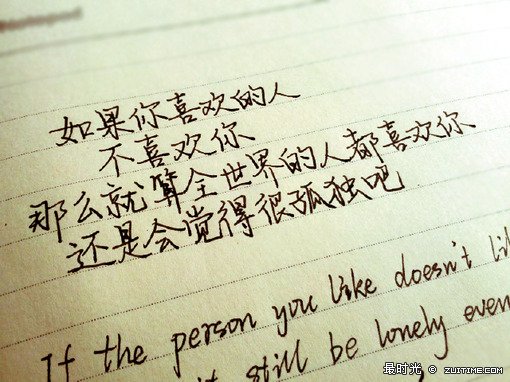 如果你喜欢的人
不喜欢你
那么就算全世界的人都喜欢你
还是会觉得很孤独吧
If the person you like doesn't
still be lonely even
最时光 © ZUITIME.COM